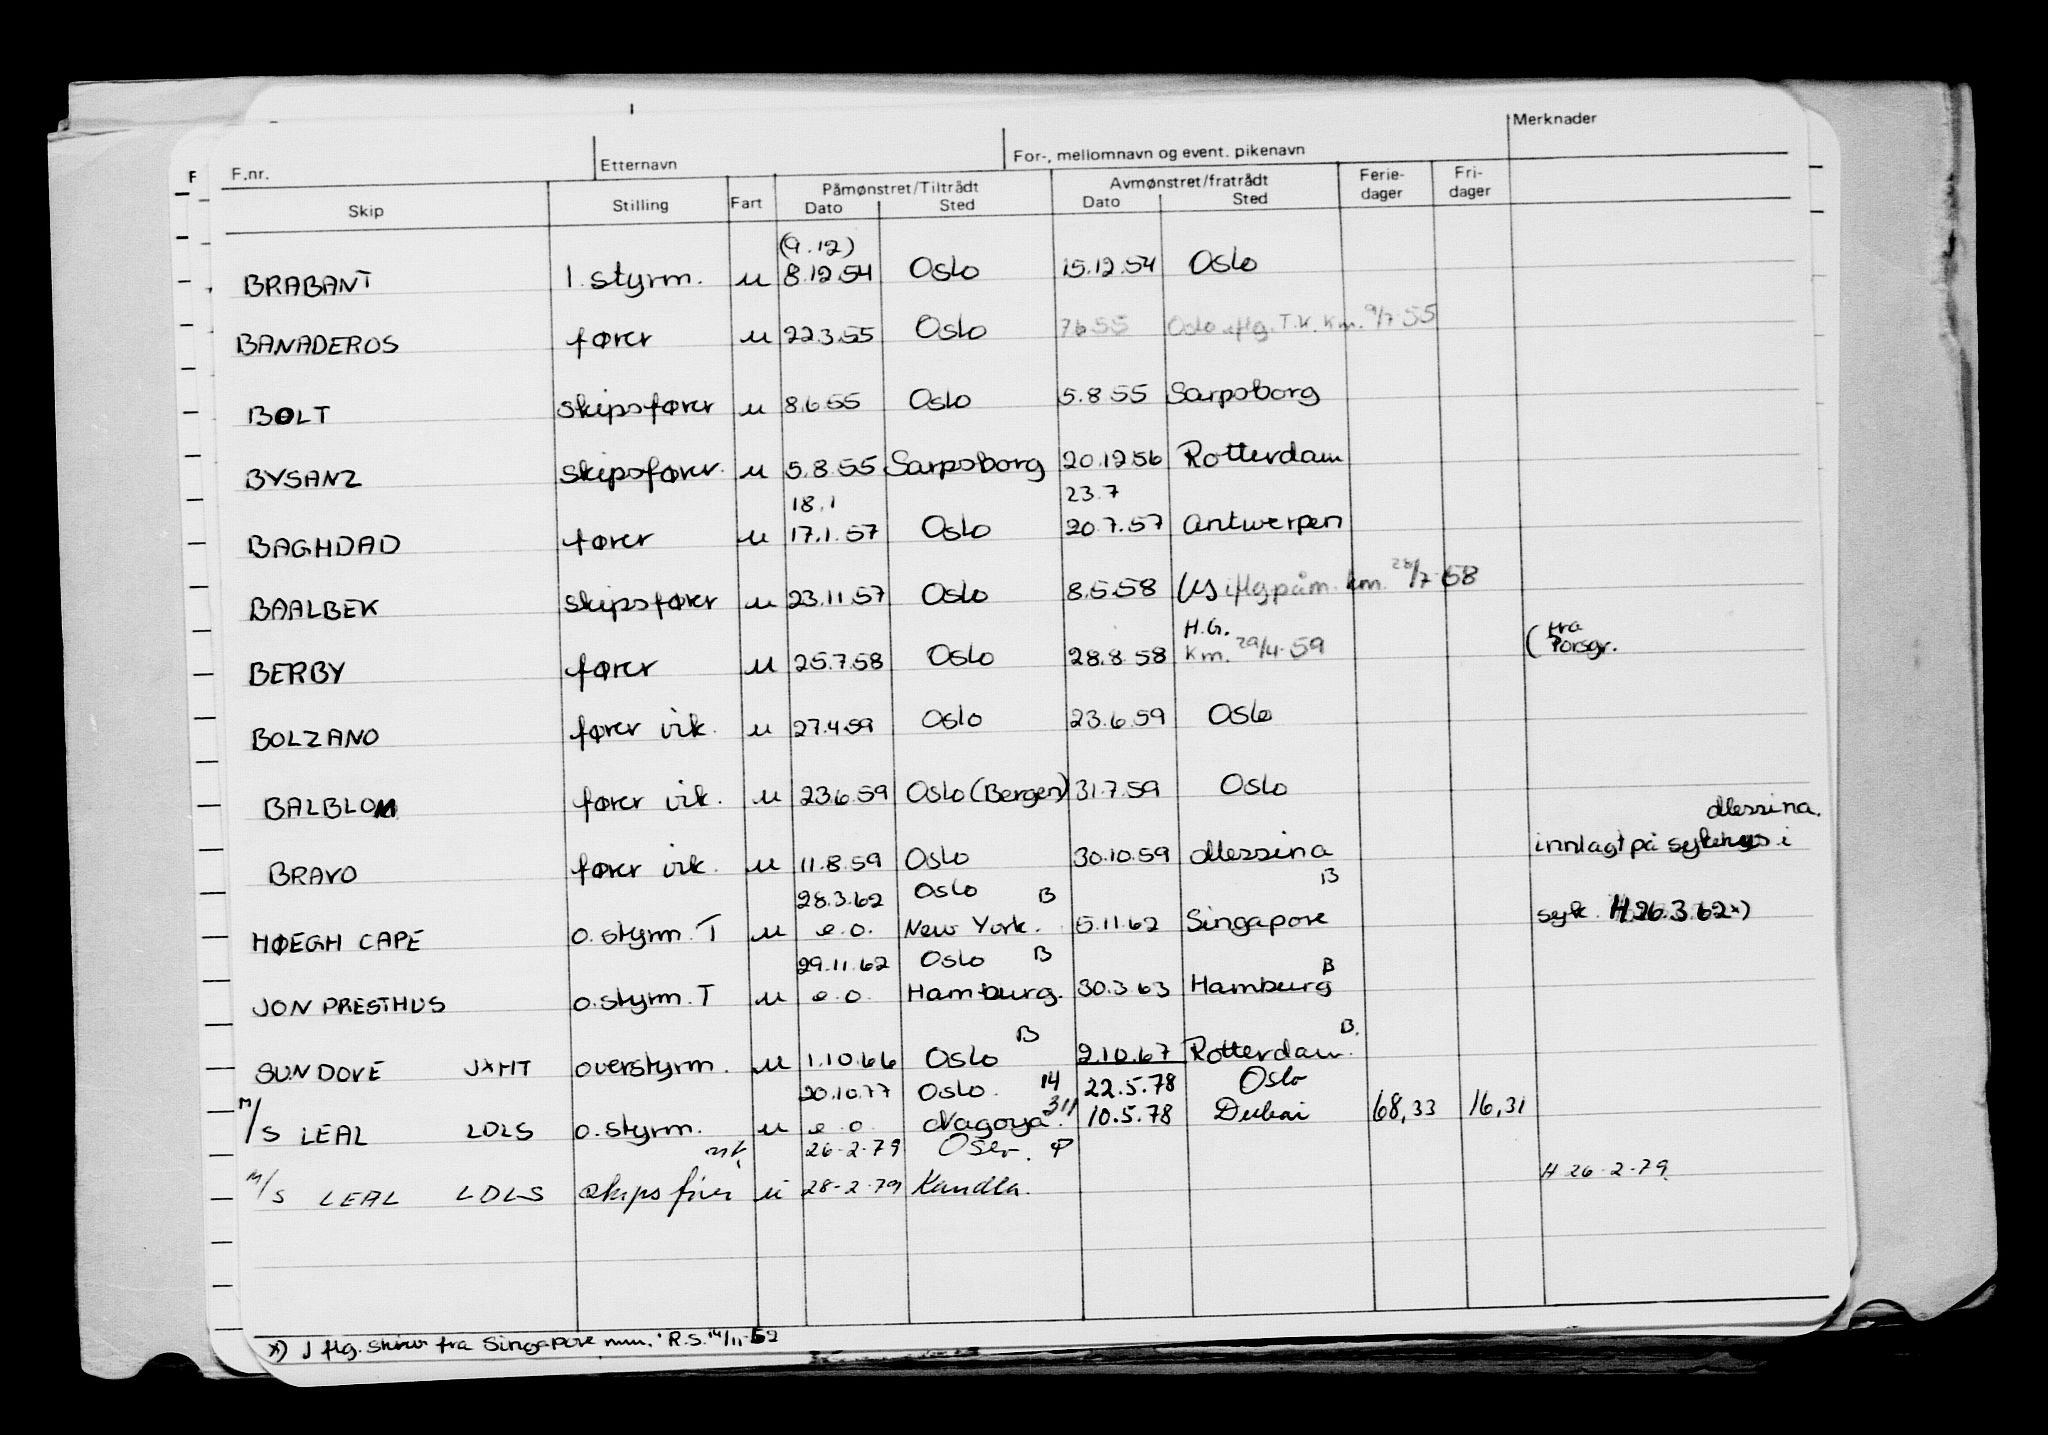 F
F.nr.
Etternavn
For-, mellomnavn og event. pikenavn
Merknader
Skip
Stilling
Fart
Påmønstret/Tiltrådt
Dato
Sted
Avmønstret/fratrådt
Dato
Sted
Ferie-
dager
Fri-
dager
(9.12)
BRABANT 1. styrm. u 8.12.54 Oslo 15.12.54 Oslo
BANADEROS fører u 22.3.55 Oslo 7.6.55 Oslo iflg. T.K. Km. 9/7 55
BOLT skipsfører u 8.6.55 Oslo 5.8.55 Sarpsborg
BYSANZ skipsfører u 5.8.55 Sarpsborg 20.12.56 Rotterdam
18.1 23.7
BAGHDAD fører u 17.1.57 Oslo 20.7.57 Antwerpen
BAALBEK skipsfører u 23.11.57 Oslo 8.5.58 US iflg påm. km. 28/7-58
H.G. (fra
BERBY fører u 25.7.58 Oslo 28.8.58 Km. 29/4-59 Porsgr.
BOLZANO fører vik. u 27.4.59 Oslo 23.6.59 Oslo
BALBLOM fører vik. u 23.6.59 Oslo (Bergen) 31.7.59 Oslo
Messina.
BRAVO fører vik. u 11.8.59 Oslo 30.10.59 Messina innlagt på sykehus i
28.3.62 Oslo B B
HØEGH CAPE o. styrm. T u e.o. New York. 5.11.62 Singapore syk. H 26.3.62 x)
29.11.62 Oslo B B
JON PRESTHUS o. styrm. T u e.o. Hamburg. 30.3.63 Hamburg
B B.
SUN DOVE JXHT overstyrm. u 1.10.66 Oslo 2.10.67 Rotterdam.
20.10.77 Oslo. 14 22.5.78 Oslo
M/S LEAL LDLS o. styrm. u e.o. Nagoya. 311 10.5.78 Dubai 68,33 16,31
26-2-79 Oslo.
M/S LEAL LDLS skipsfører u 28-2-79 Kandla. H 26-2-79
x) J flg. skriv fra Singapore mm. R.S. 14/11-52